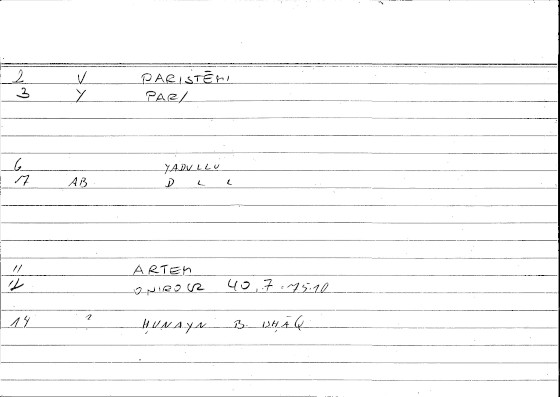 2 V PARISTĒMI
3 Y PAR/
6 YADULLU
7 AB D L L
11 ARTEM
12 ONIROCR 40,7 = 75.10
14 ? ḤUNAYN B. ISḤĀQ